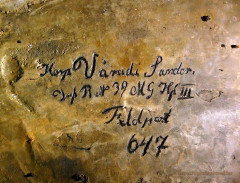 Korp. Váradi Sandor,
Inf R No 39 MG Kp III
Feldpost
647